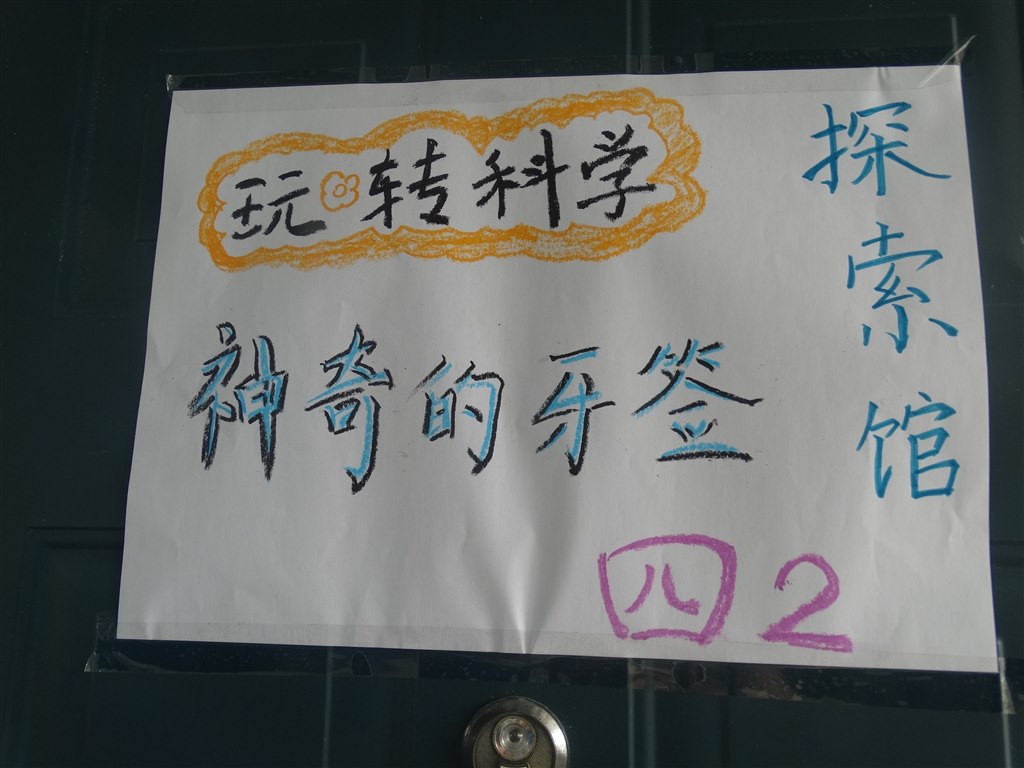 玩转科学
探索馆
神奇的牙签
四2